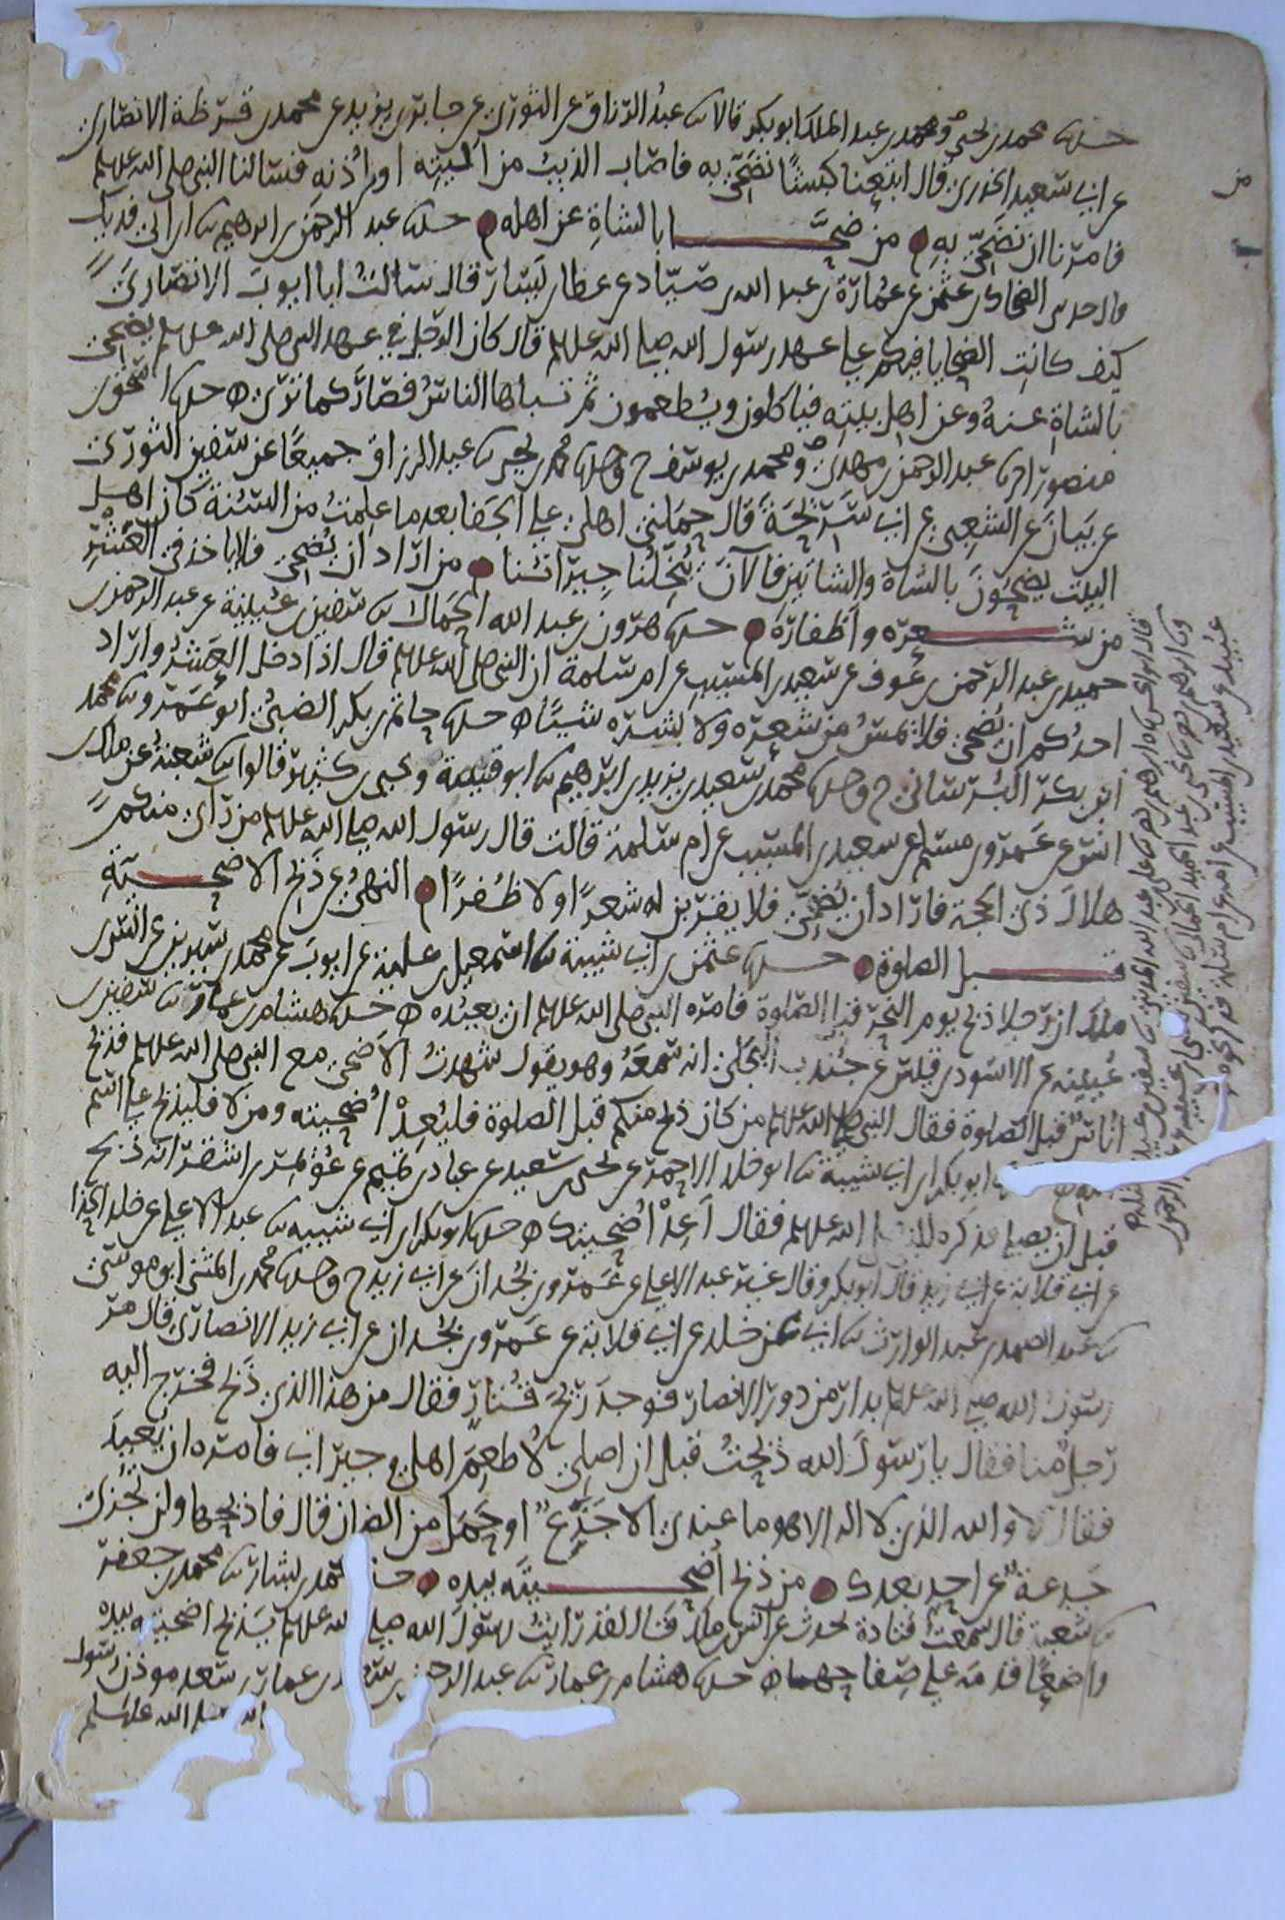 حدثنا محمد بن يحيى ومحمد بن عبد الملك ابو بكر قالا ثنا عبد الرزاق عن الثوري عن جابر بن يزيد عن محمد بن قرظة الانصاري
عن ابي سعيد الخدري قال ابتعنا كبشًا نضحي به فاصاب الذيب من اليته او اذنه فسالنا النبي صلى الله عليه وسلم
فامرنا ان نضحي به من ضحى بالشاة عن اهله حدثنا عبد الرحمن بن ابرهيم ثنا ابن ابي فديك
قال حدثني الضحاك بن عثمن عن عمارة بن عبد الله بن صياد عن عطا بن يسار قال سالت ابا ايوب الانصاري
كيف كانت الضحايا فيكم على عهد رسول الله صلى الله عليه وسلم قال كان الرجل في عهد النبي صلى الله عليه وسلم يضحي
بالشاة عنه وعن اهل بيته فياكلون ويطعمون ثم تباها الناس فصار كما ترى حدثنا اسحق بن
منصور انا عبد الرحمن بن مهدي ومحمد بن يوسف ح وحدثنا محمد بن يحيى ثنا عبد الرزاق جميعًا عن سفين الثوري
عن بيان عن الشعبي عن ابي سريحة قال حملني اهلي على الجفا بعد ما علمت من السنة كان اهل
البيت يضحون بالشاة والشاتين فالآن يبخلنا جيراننا من اراد ان يضحي فلا ياخذ في العشر
من شعره واظفاره حدثنا هرون بن عبد الله الحمال ثنا سفين بن عيينة عن عبد الرحمن بن
حميد بن عبد الرحمن بن عوف عن سعيد بن المسيب عن ام سلمة ان النبي صلى الله عليه وسلم قال اذا دخل العشر واراد
احدكم ان يضحي فلا يمس من شعره ولا بشره شيئًا حدثنا حاتم بن بكر الضبي ابو عمرو ثنا محمد
ابن بكر البرساني ح وحدثنا محمد بن سعيد بن يزيد بن ابرهيم ثنا ابو قتيبة ويحيى بن كثير قالوا ثنا شعبة عن ملك بن
انس عن عمرو بن مسلم عن سعيد بن المسيب عن ام سلمة قالت قال رسول الله صلى الله عليه وسلم من راى منكم
هلال ذي الحجة فاراد ان يضحي فلا يقربن له شعرًا ولا ظفرًا النهي عن ذبح الاضحية
قبل الصلوة حدثنا عثمن بن ابي شيبة ثنا اسمعيل بن علية عن ايوب عن محمد بن سيرين عن انس بن
ملك ان رجلا ذبح يوم النحر قبل الصلوة فامره النبي صلى الله عليه وسلم ان يعيده حدثنا هشام بن عمار ثنا سفين بن
عيينة عن الاسود بن قيس عن جندب البجلي انه سمعه وهو يقول شهدت الاضحى مع النبي صلى الله عليه وسلم فذبح
اناس قبل الصلوة فقال النبي صلى الله عليه وسلم من كان ذبح منكم قبل الصلوة فليعد اضحيته ومن لا فليذبح على اسم
ابو بكر بن ابي شيبة ثنا ابو خلد الاحمر عن يحيى بن سعيد عن عباد بن تميم عن عويمر بن اشقر انه ذبح
قبل ان يصلي فذكره للنبي صلى الله عليه وسلم فقال اعد اضحيتك حدثنا ابو بكر بن ابي شيبة ثنا عبد الاعلى عن خلد الحذا
عن ابي قلابة عن ابي زيد قال ابو بكر وقال غير عبد الاعلى عن عمرو بن بجدان عن ابي زيد ح وحدثنا محمد بن المثنى ابو موسى
ثنا عبد الصمد بن عبد الوارث ثنا ابي عن خلد عن ابي قلابة عن عمرو بن بجدان عن ابي زيد الانصاري قال مر
رسول الله صلى الله عليه وسلم بدار من دور الانصار فوجد ريح قتار فقال من هذا الذي ذبح فخرج اليه
رجل منا فقال يا رسول الله ذبحت قبل ان اصلي لاطعم اهلي وجيراني فامره ان يعيد
فقال لا والله الذي لا اله الا هو ما عندي الا جذع او حمل من الضان قال فاذبحها ولن تجزئ
جذعة عن احد بعدك من ذبح اضحيته بيده حدثنا محمد بن بشار ثنا محمد بن جعفر
ثنا شعبة قال سمعت قتادة يحدث عن انس بن ملك قال لقد رايت رسول الله صلى الله عليه وسلم يذبح اضحيته بيده
واضعًا قدمه على صفاحها حدثنا هشام بن عمار ثنا عبد الرحمن بن سعد بن عمار بن سعد موذن رسول
الله صلى الله عليه وسلم